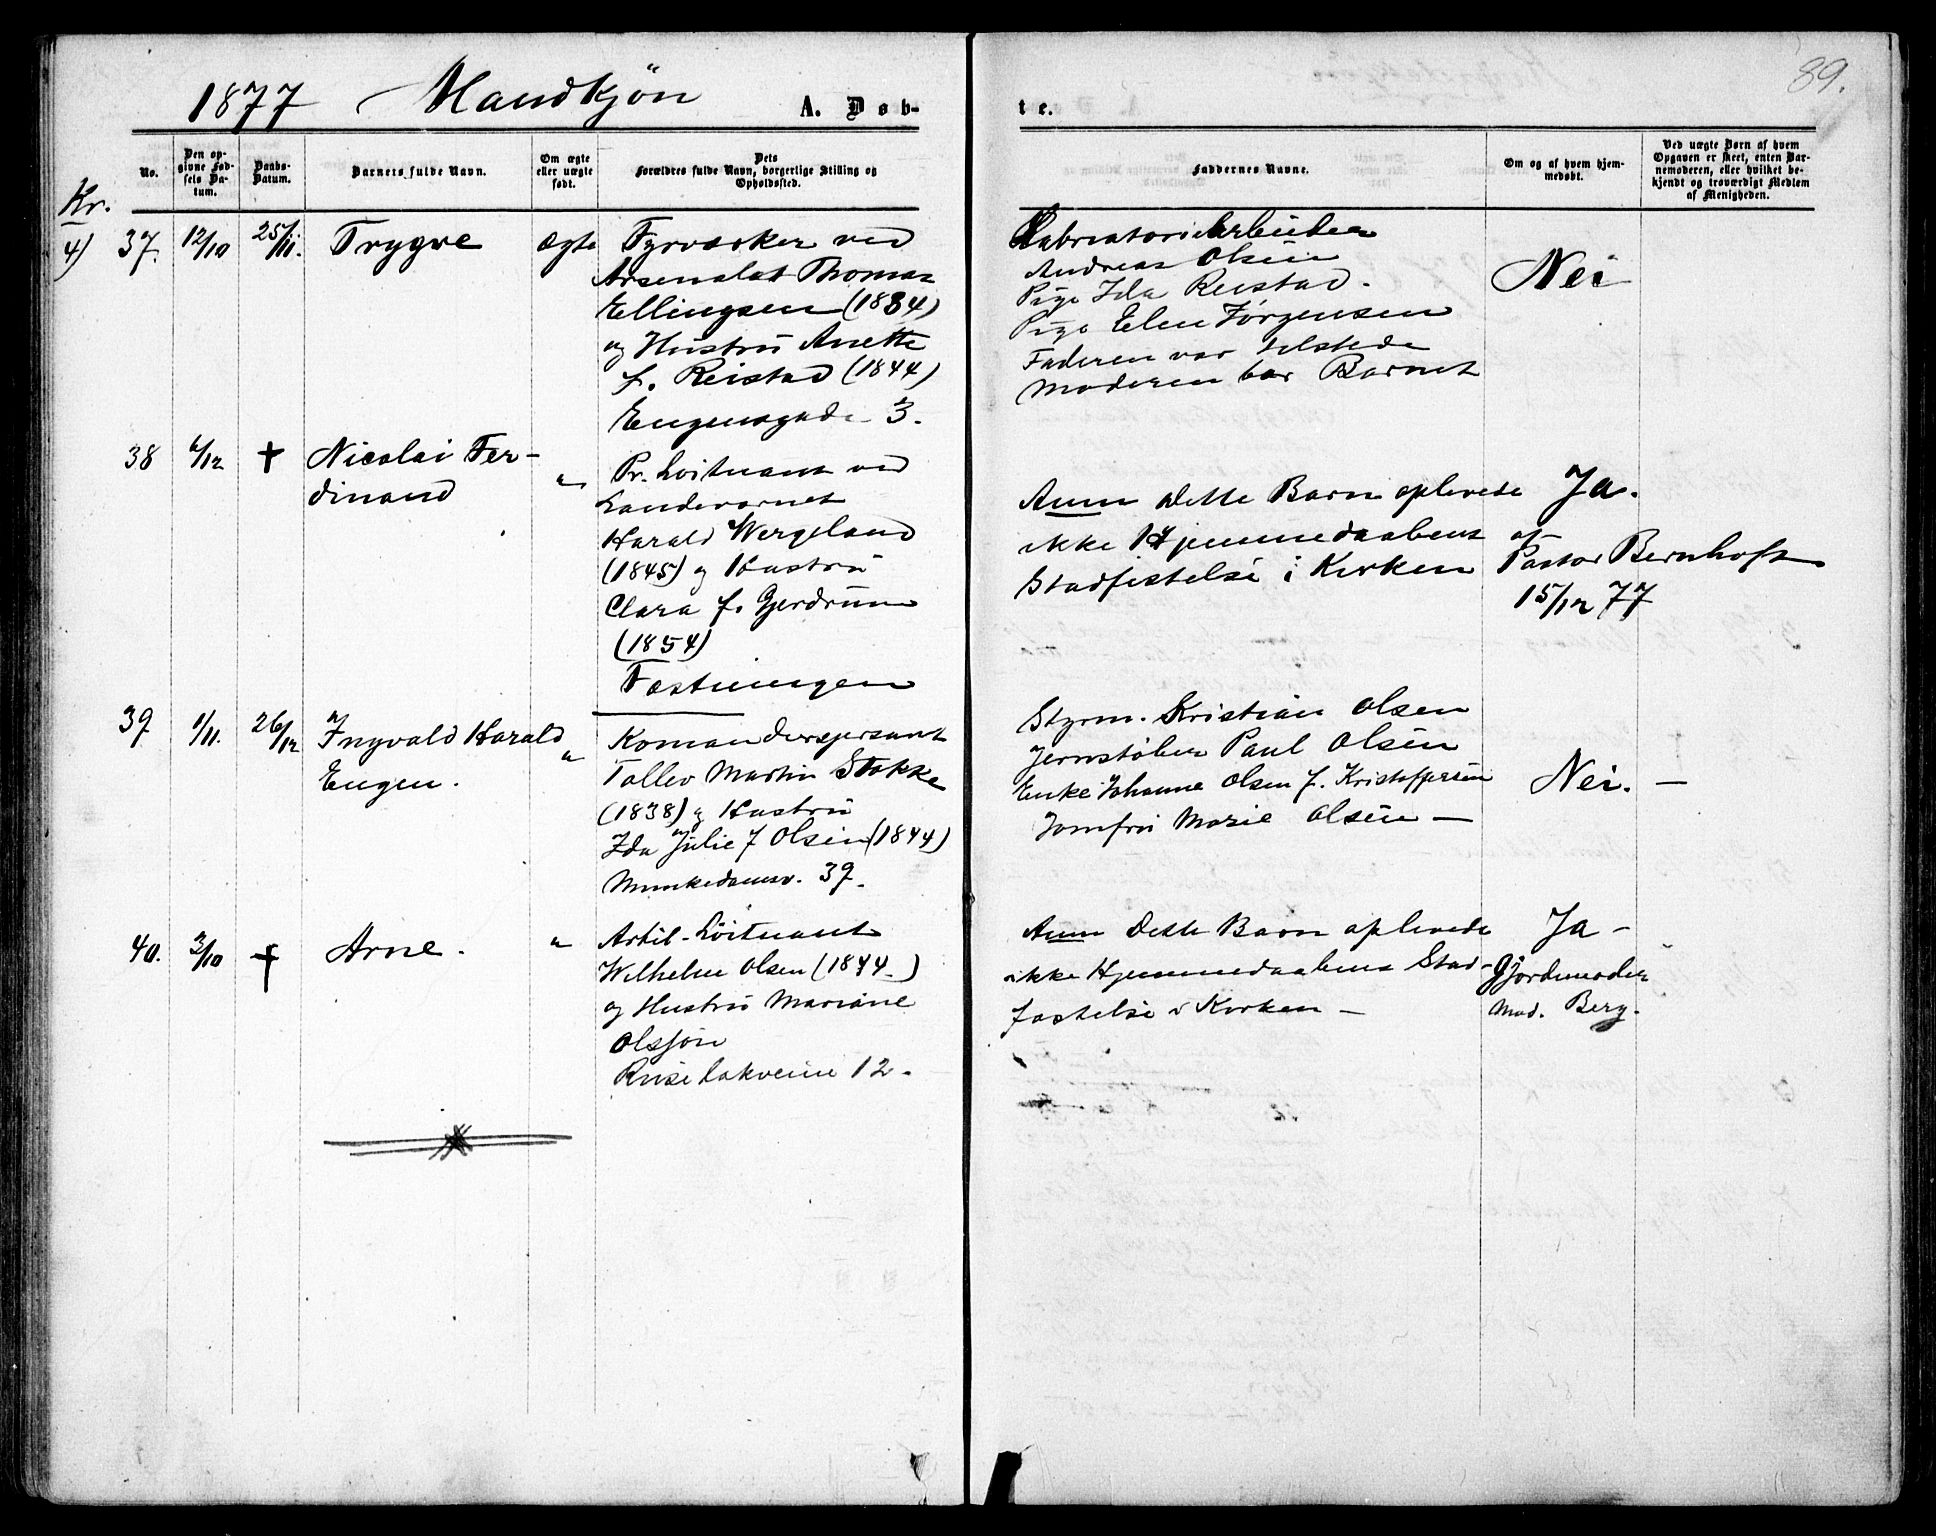 1877 Mandkjön A. Døb-
te.
89.
No.
Den op-
givne Fød-
sels Da-
tum.
Daabs-
Datum.
Barnets fulde Navn.
Om ægte
eller uægte
født.
Dets
Forældres fulde Navn, borgerlige Stilling og
Opholdssted.
Faddernes Navne.
Om og af hvem hjem-
medøbt.
Ved uægte Børn af hvem
Opgaven er skeet, enten Bar-
nemoderen, eller hvilket be-
kjendt og troværdigt Medlem
af Menigheden.
Kr.
4)
37. 12/10 25/11. Trygve ægte
Fyrvæker ved
Arsenalet Thomas
Ellingsen (1834)
og Hustru Anette
f. Reistad (1844)
Eugensgade 3.
Andreas Olsen
Pige Ida Reistad.
Pige Elen Jørgensen
Faderen var tilstede
Moderen bar Barnet
Nei
38 6/12 † Nicolai Fer-
dinand
"
Pr. Loitnant ved
Landeværnet
Harald Wergeland
(1845) og Hustru
Clara f. Gjerdrum
(1854)
Fæstningen
Anm Dette Barn oplevede
ikke Hjemmedaabens
Stadfæstelse i Kirken
Ja.
af
Pastor Bernhoft
15/12 77
39 1/11. 26/12 Ingvald Harald
Eugen.
"
Komandersersjant
Tollev Martin Stokke
(1838) og Hustru
Ida Julie f Olsen (1844)
Munkedamsv. 39.
Styrm. Kristian Olsen
Jernstøber Paul Olsen
Enke Johanne Olsen f. Kristoffersen
Jomfru Marie Olsen —
Nei. —
40. 3/10 † Arne. "
Artil-Löitnant
Wilhelm Olsen (1844.)
og Hustru Mariane
Olsfon
Ruseløkveien 12.
Anm Dette Barn oplevede
ikke Hjemmedaabens Stad-
fæstelse i Kirken —
Ja —
Gjordemoder
Mad. Berg.